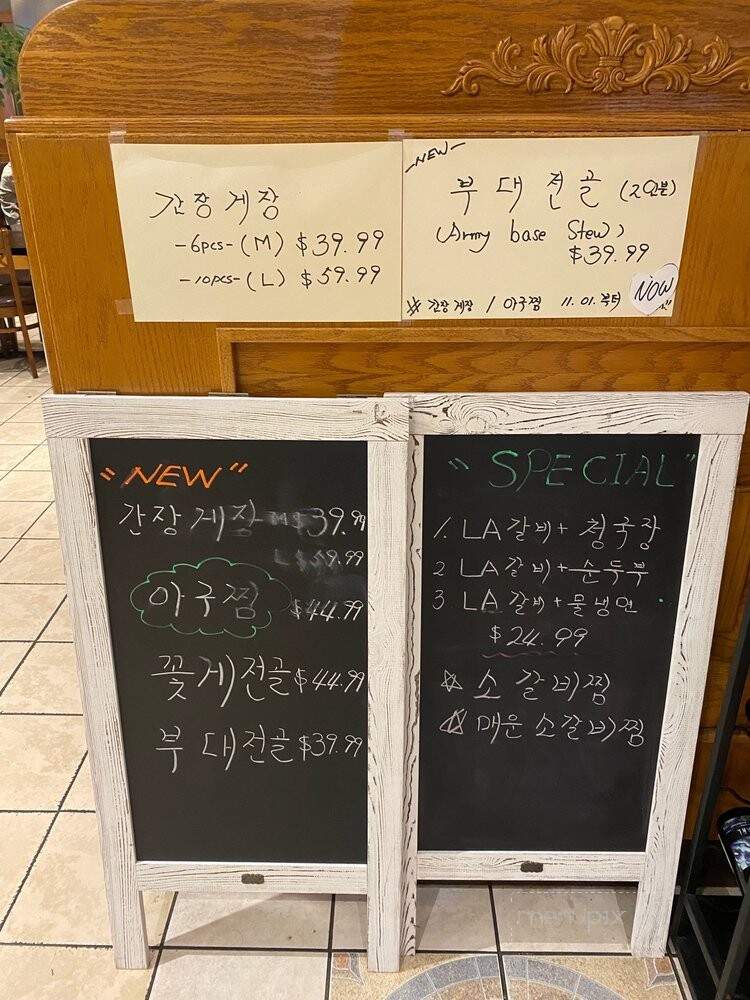 간장게장
-6pcs-(M) $39.99
-10pcs-(L) $59.99
-NEW-
부대전골 (2인분)
(Army base Stew)
$39.99
NOW
☆ 간장게장 / 아구찜 11.01.부터
"NEW"
간장게장 M $39.99
L $59.99
아구찜 $44.99
꽃게전골 $44.99
부대전골 $39.99
"SPECIAL"
1. LA갈비+청국장
2 LA갈비+순두부
3 LA갈비+물냉면
$24.99
☆ 소갈비찜
☆ 매운소갈비찜
menupix